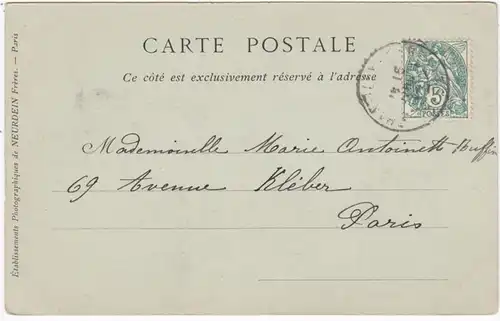 CARTE POSTALE
Ce côté est exclusivement réservé à l'adresse
Mademoiselle Marie Antoinette Buffin
69 Avenue Kléber
Paris
Établissements Photographiques de NEURDEIN Frères. — Paris